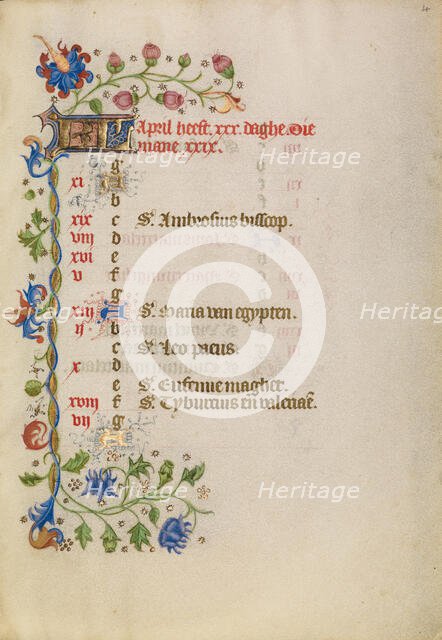 4
KL April heeft. xxx. daghe. Die
mane xxix.
g
xi A
b
xix c S. Ambrosius bisscop.
viij d
xvi e
v f
g
xiij A S. Maria van egypten.
ij b
c S. Leo paeus.
x d
e S. Eufemie maghet.
xviij f S. Tyburcius en valeriae.
vij g
A
Heritage Heritage Heritage
Heritage Heritage Heritage
Heritage Heritage Heritage
C